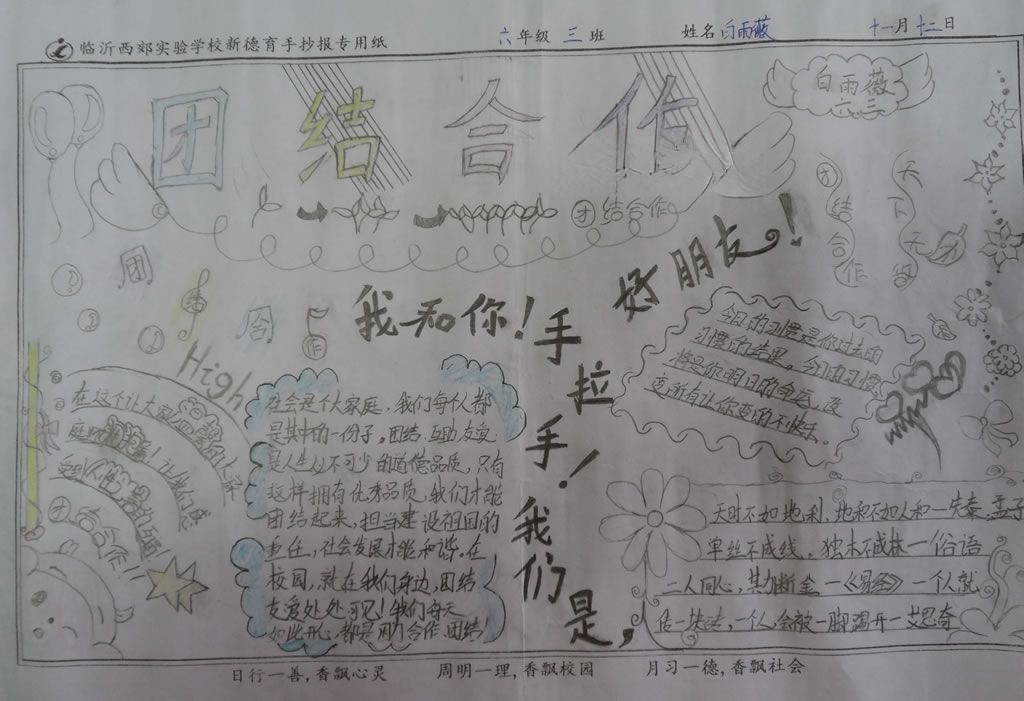 临沂西郊实验学校新德育手抄报专用纸 六年级 三班 姓名 白雨薇 十一月十二日
团结合作
白雨薇
六.三
团结合作
团结合作
天下
团
合
作
High
我和你!手拉手!我们是,好朋友!
今日的习惯是你过去的
习惯的结果。今日的习惯
将是你明日的命运,改
变所有让你变的不快乐。
在这个让大家温馨的大家
庭
团结合作!!
社会是个大家庭,我们每个人都
是其中的一份子。团结、互助、友谊
是人生必不可少的道德品质,只有
这样拥有优秀品质,我们才能
团结起来,担当建设祖国的
重任,社会发展才能和谐。在
校园,就在我们身边,团结
友爱处处可见!我们每天
如此开心,都是用合作、团结!
天时不如地利,地利不如人和一先秦,孟子
单丝不成线,独木不成林一俗语
二人同心,其力断金一《易经》一个人就
一个人会被一脚踢开一艾思奇
日行一善,香飘心灵 周明一理,香飘校园 月习一德,香飘社会